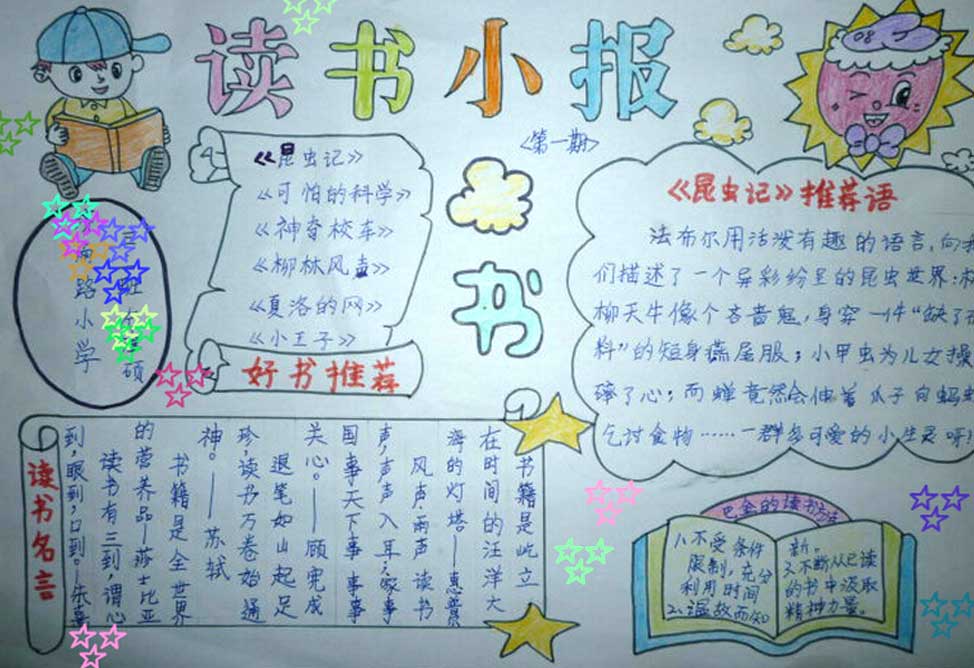 读书小报
<第一期>
《昆虫记》
《可怕的科学》
《神奇校车》
《柳林风声》
《夏洛的网》
《小王子》
好书推荐
路小学
硕
书
《昆虫记》推荐语
法布尔用活泼有趣的语言,向我
们描述了一个异彩纷呈的昆虫世界:
柳天牛像个吝啬鬼,身穿一件“缺了
料”的短身燕尾服;小甲虫为儿女操
碎了心;而蝉竟然会伸着爪子向蚂
乞讨食物……一群多可爱的小生灵呀
读书名言
书籍是屹立
在时间的汪洋大
海的灯塔。——惠普
风声雨声读书
声,声声入耳;家事
国事天下事事事
关心。——顾宪成
退笔如山起足
珍,读书万卷始通
神。——苏轼
书籍是全世界
的营养品—莎士比亚
读书有三到,谓心
到,眼到,口到。—朱熹
巴金的读书方法
1、不受条件
限制,充分
利用时间
2、温故而知
新。
3、不断从已读
的书中汲取
精神力量。